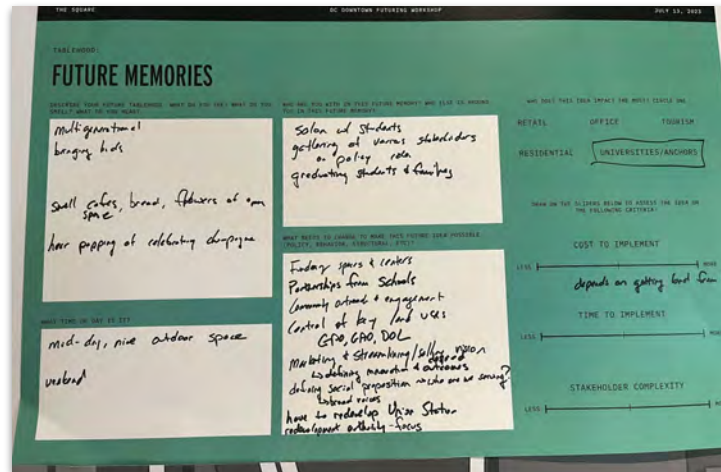 THE SQUARE
DC DOWNTOWN FUTURING WORKSHOP
JULY 13, 2023
TABLEHOOD:
FUTURE MEMORIES
DESCRIBE YOUR FUTURE TABLEHOOD. WHAT DO YOU SEE? WHAT DO YOU
SMELL? WHAT DO YOU HEAR?
multigenerational
bringing kids
smell cafes, bread, flowers of open
space
hear popping of celebrating champagne
WHAT TIME OF DAY IS IT?
mid-day, nice outdoor space
weekend
WHO ARE YOU WITH IN THIS FUTURE MEMORY? WHO ELSE IS AROUND
YOU IN THIS FUTURE MEMORY?
salon w/ students
gathering of various stakeholders
on policy
graduating students & families
WHAT NEEDS TO CHANGE TO MAKE THIS FUTURE IDEA POSSIBLE
(POLICY, BEHAVIOR, STRUCTURAL, ETC)?
Funding spaces & centers
Partnerships from Schools
Community outreach & engagement
Control of key land uses
GPO, GAO, DOL
Marketing & streamlining/selling vision
defining innovation & outcomes
defining social proposition who are we serving?
broad voices
have to redevelop Union Station
redevelopment authority - focus
WHO DOES THIS IDEA IMPACT THE MOST? CIRCLE ONE
RETAIL
OFFICE
TOURISM
RESIDENTIAL
UNIVERSITIES/ANCHORS
DRAW ON THE SLIDERS BELOW TO ASSESS THE IDEA ON
THE FOLLOWING CRITERIA:
COST TO IMPLEMENT
LESS
MORE
depends on getting land from
TIME TO IMPLEMENT
LESS
STAKEHOLDER COMPLEXITY
LESS